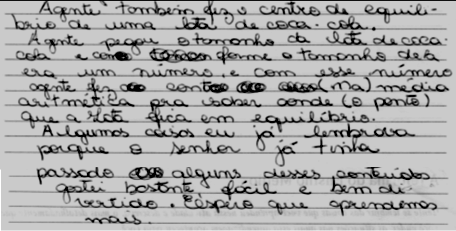 Agente também fez o centro de equilí-
brio de uma lata de coca-cola.
Agente pegou o tamanho da lata de coca
cola e com forme o tamanho dela
era um número, e com esse número
agente fez a conta (na) media
aritmética pra saber aonde (o ponto)
que a lata fica em equilíbrio.
Algumas coisas eu já lembrava
porque o senhor já tinha
passado alguns desses conteúdos
gostei bastante, fácil e bem di-
vertido. Espero que aprendemos
mais.